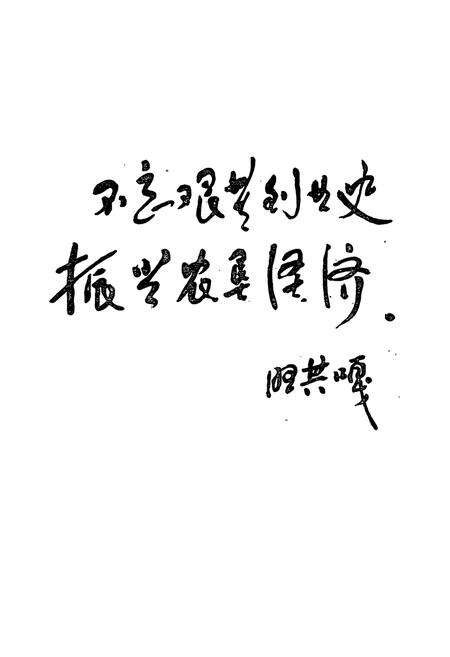 不忘艰苦创业史
振兴农垦经济.
共嘎